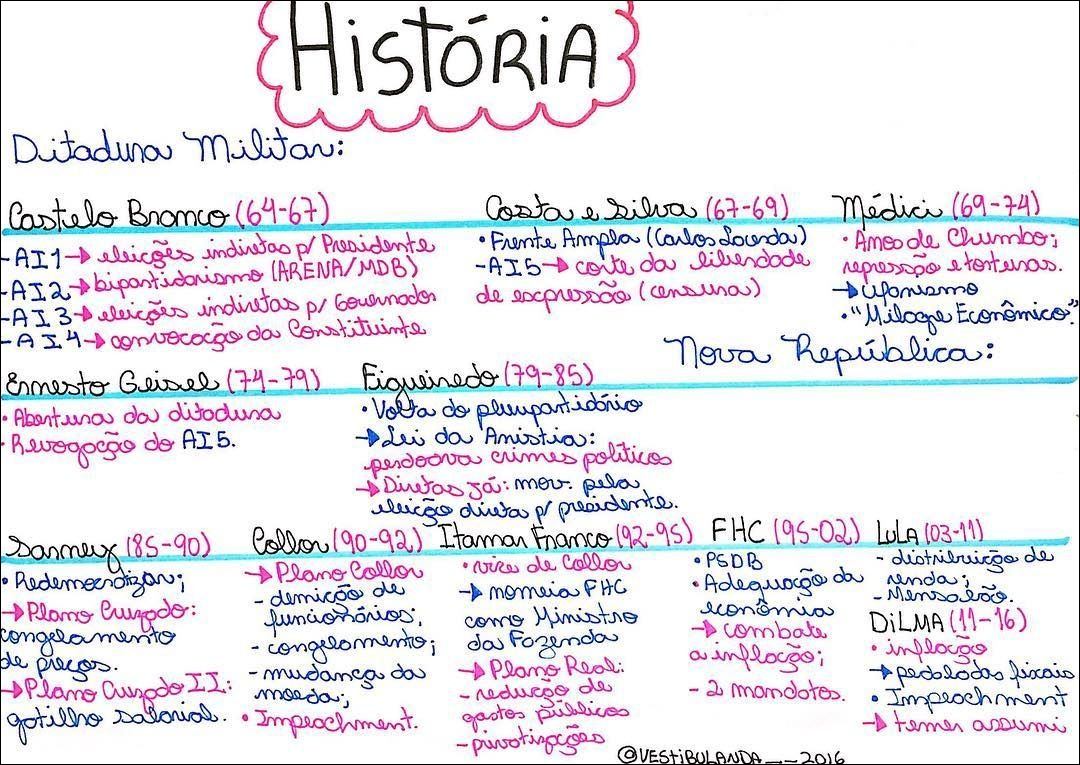 HISTÓRIA
Ditadura Militar:
Castelo Branco (64-67)
-AI1→ eleições indiretas p/ Presidente
-AI2→ bipartidarismo (ARENA/MDB)
-AI3→ eleições indiretas p/ Governador
-AI4→ convocação da Constituinte
Costa e Silva (67-69)
• Frente Ampla (Carlos Lacerda)
-AI5→ corte da liberdade
de expressão (censura)
Médici (69-74)
• Anos de Chumbo;
repressão e torturas.
→ ufanismo
• "Milagre Econômico".
Ernesto Geisel (74-79)
• Abertura da ditadura
• Revogação do AI5.
Figueiredo (79-85)
• Volta do pluripartidário
→ Lei da Anistia:
perdoava crimes políticos
→ Diretas já: mov. pela
eleição direta p/ presidente.
Nova República:
Sarney (85-90)
• Redemocratizar;
→ Plano Cruzado:
congelamento
de preços.
→ Plano Cruzado II:
gatilho salarial.
Collor (90-92)
→ Plano Collor
- demição de
funcionários;
- congelamento;
- mudança da
moeda;
• Impeachment.
Itamar Franco (92-95)
• vice de Collor
→ nomeia FHC
como Ministro
da Fazenda
→ Plano Real:
- redução de
gastos públicos
- privatizações
FHC (95-02)
• PSDB
• Adequação da
econômia
→ combate
a inflação;
- 2 mandatos.
LULA (03-11)
- distribuição de
renda;
- Mensalão.
DILMA (11-16)
• inflação
→ pedaladas fiscais
• Impeachment
→ temer assumi
@VESTIBULANDA_--2016